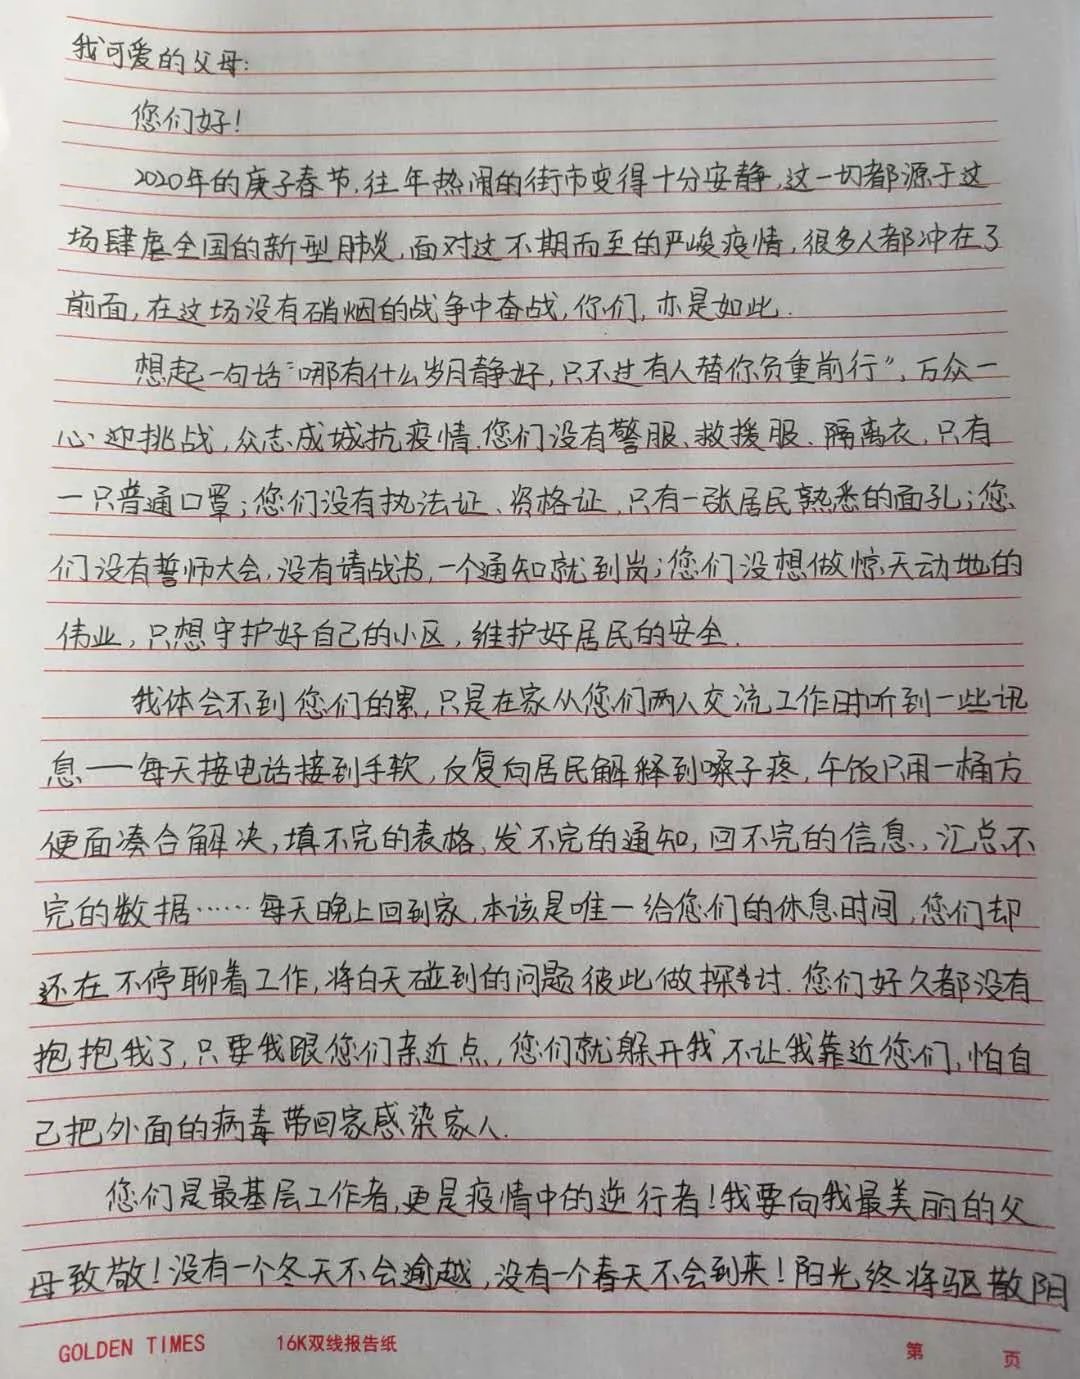 我可爱的父母:
您们好!
2020年的庚子春节,往年热闹的街市变得十分安静,这一切都源于这
场肆虐全国的新型肺炎,面对这不期而至的严峻疫情,很多人都冲在了
前面,在这场没有硝烟的战争中奋战,你们,亦是如此.
想起一句话“哪有什么岁月静好,只不过有人替你负重前行”,万众一
心迎挑战,众志成城抗疫情.您们没有警服、救援服、隔离衣,只有
一只普通口罩;您们没有执法证、资格证,只有一张居民熟悉的面孔;您
们没有誓师大会,没有请战书,一个通知就到岗;您们没想做惊天动地的
伟业,只想守护好自己的小区,维护好居民的安全.
我体会不到您们的累,只是在家从您们两人交流工作时听到一些讯
息——每天接电话接到手软,反复向居民解释到嗓子疼,午饭只用一桶方
便面凑合解决,填不完的表格,发不完的通知,回不完的信息,汇总不
完的数据……每天晚上回到家,本该是唯一给您们的休息时间,您们却
还在不停聊着工作,将白天碰到的问题彼此做探讨.您们好久都没有
抱抱我了,只要我跟您们亲近点,您们就躲开我不让我靠近您们,怕自
己把外面的病毒带回家感染家人.
您们是最基层工作者,更是疫情中的逆行者!我要向我最美丽的父
母致敬!没有一个冬天不会逾越,没有一个春天不会到来!阳光终将驱散阴
GOLDEN TIMES 16K双线报告纸 第 页